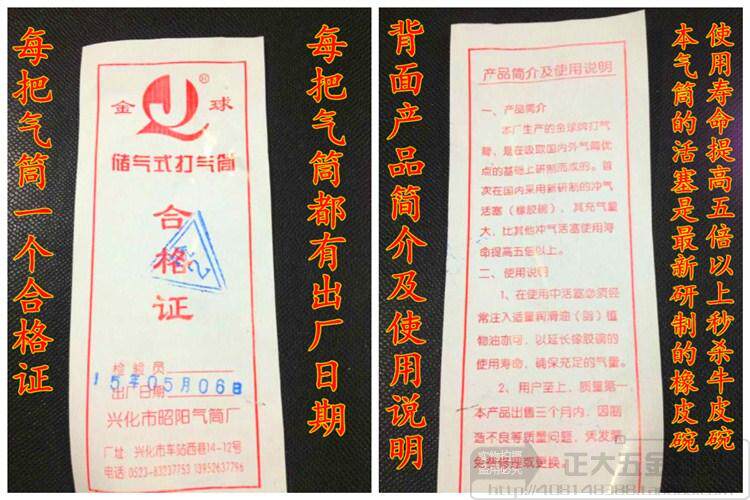 每把气筒一个合格证
金 球
®
储气式打气筒
合格证
2
检验员
出厂日期
15年05月06日
兴化市昭阳气筒厂
厂址:兴化市车站西巷14-12号
电话:0523-83237753 13952637796
每把气筒都有出厂日期
背面产品简介及使用说明
产品简介及使用说明
一、产品简介
本厂生产的金球牌打气
筒,是在吸取国内外气筒优
点的基础上研制而成的。首
次在国内采用新研制的冲气
活塞(橡胶碗),其充气量
大,比其他冲气活塞使用寿
命提高五倍以上。
二、使用说明
1、在使用中活塞必须经
常注入适量润滑油(脂)植
物油亦可,以延长橡胶碗的
使用寿命,确保充足的气量。
2、用户至上,质量第一
本产品出售三个月内,因制
造不良等质量问题,凭发票
免费修理或更换。
使用寿命提高五倍以上秒杀牛皮碗
本气筒的活塞是最新研制的橡皮碗
实物拍摄
盗用必究
正大五金
http://408148388.taobao.com